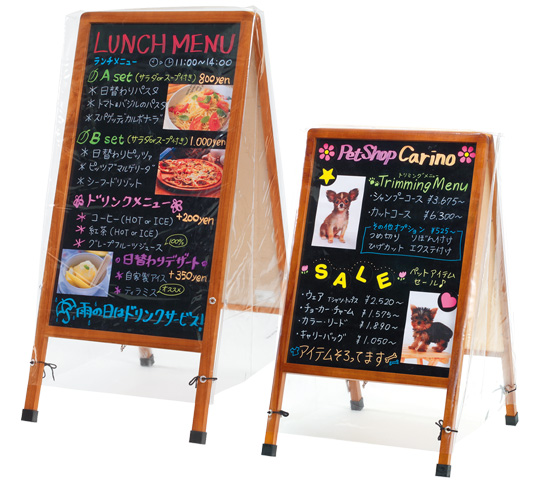 LUNCH MENU
ランチメニュー 11:00~14:00
① A set (サラダorスープ付き) 800yen
* 日替わりパスタ
* トマト&バジルのパスタ
* スパゲッティカルボナーラ
① B set (サラダorスープ付き) 1.000yen
* 日替わりピッツァ
* ピッツァマルゲリータ
* シーフードリゾット
* ドリンクメニュー
* コーヒー (HOT or ICE) +200yen
* 紅茶 (HOT or ICE)
* グレープフルーツジュース 100%
* 日替わりデザート
* 自家製アイス +350yen
* ティラミス オススメ
雨の日はドリンクサービス!
PetShop Carino
トリミングメニュー
Trimming Menu
・シャンプーコース ¥3.675~
・カットコース ¥6.300~
その他オプション ¥525~
つめ切り リボン付け
ひげカット エクステ付け
SALE ペットアイテム
セール♪
・ウェア Tシャツ、トップス ¥2.520~
・チョーカー チャーム ¥1.575~
・カラー・リード ¥1.890~
・キャリーバッグ ¥1.050~
アイテムそろってます